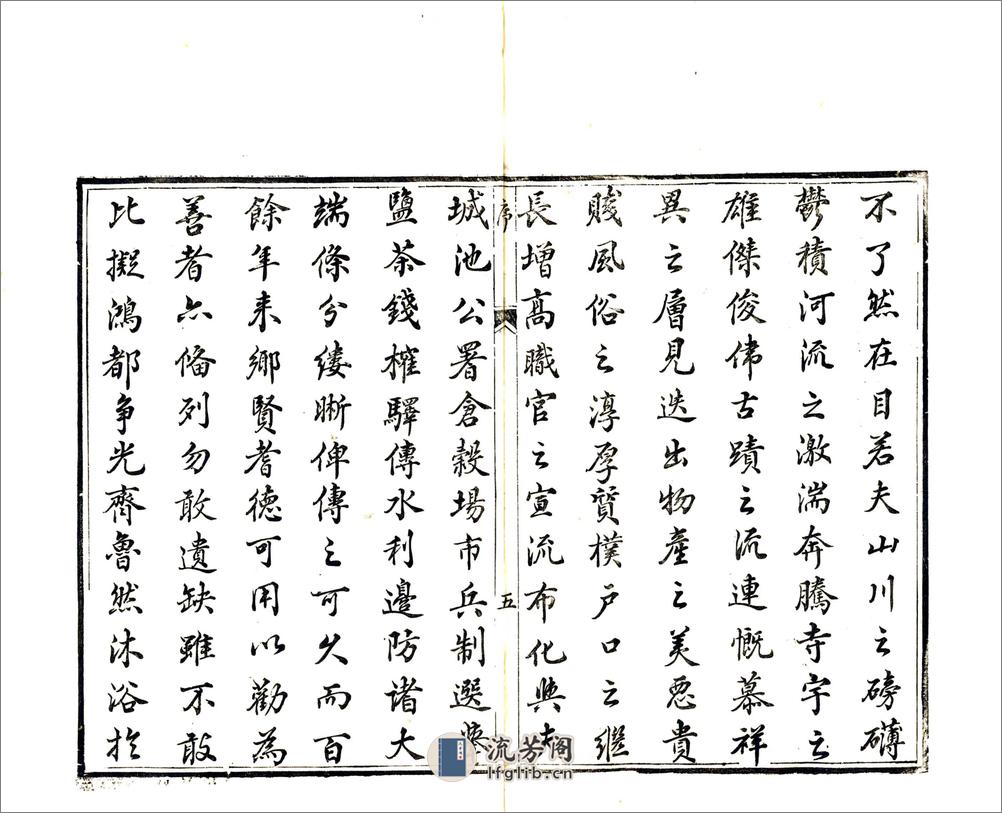 不了然在目若夫山川之磅礴
鬱積河流之激湍奔騰寺宇之
雄傑俊偉古蹟之流連慨慕祥
異之層見迭出物產之美惡貴
賤風俗之淳厚質樸戶口之繼
長增高職官之宣流布化與夫
序
五
城池公署倉穀場市兵制選舉
鹽茶錢榷驛傳水利邊防諸大
端條分縷晰俾傳之可久而百
餘年来鄉賢耆德可用以勸為
善者亦備列勿敢遺缺雖不敢
比擬鴻都争光齊魯然沐浴於
流芳阁
lfglib.cn